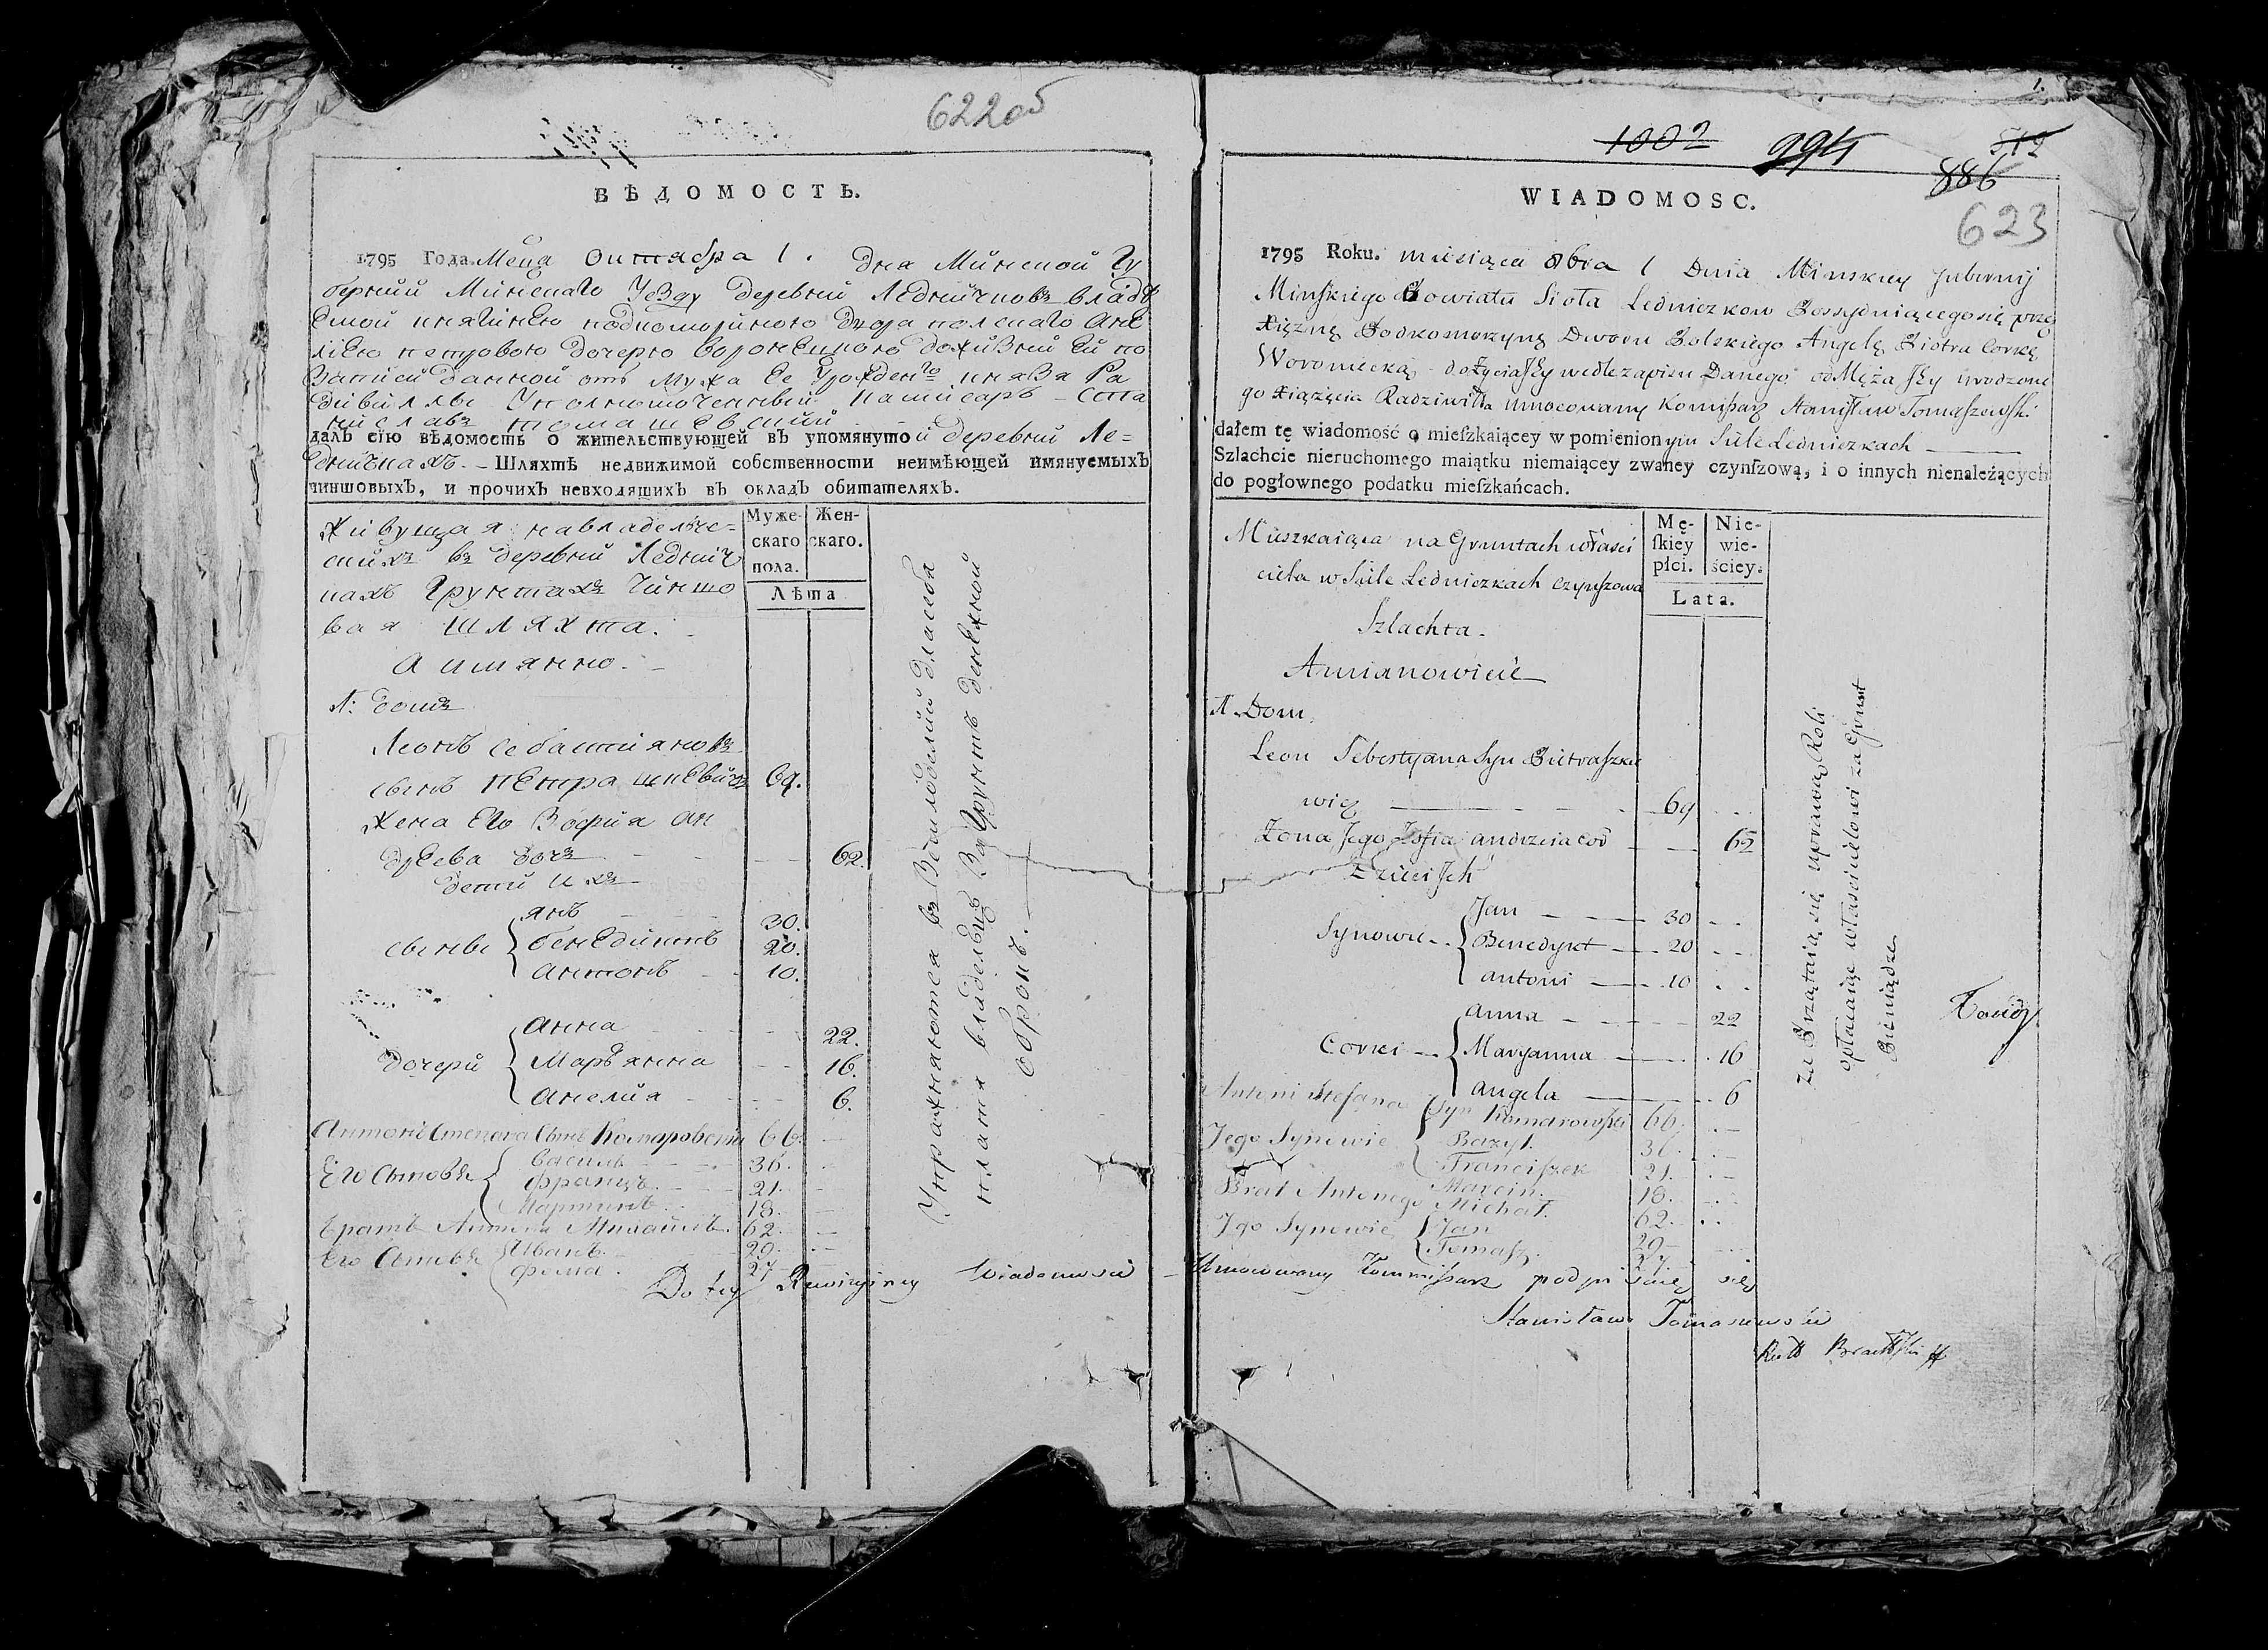 622об
ВѢДОМОСТЬ.
1795 Года. Мсца Октября 1. дня Минской Гу
бернии Минскаго Уезду деревни Ледничковъ владе
емой княгинею подкомориною двора полскаго Анѣ
лѣею петровою дочерью Воронецкою дожизни ей по
записи данной отъ Мужа Ее Урожденго князя Ра
дивилла Уполномоченный камисаръ Ста
ниславъ томашевский
далъ сію вѣдомость о жительствующей въ упомянутой деревни Ле=
дничкахъ. - Шляхтѣ недвижимой собственности неимѣющей имянуемыхъ
чиншовыхъ, и прочихъ невходящихъ въ окладъ обитателяхъ.
Муже-
скаго
пола.
Жен-
скаго.
Лѣта
Живущая на владелче=
скихъ въ деревни Леднич
кахъ Грунтахъ Чиншо
вая шляхта.
А имянно.
1: домъ
Леонъ Себастияновъ
сынъ пЕтрашкевичъ 69.
Жена Его Зофия ан
дрЕева дочъ 62.
дети ихъ
сыны
янъ 30.
бенЕдиктъ 20.
антонъ 10.
дочери
анна 22.
Марьянна 16.
анелия 6.
Антонъ Степана Сынъ Комаровски 66.
Его Сыновья
василь 36.
францъ 21.
Мартинъ 18.
братъ Антона Михайлъ. 62.
Его Сыновья
Иванъ 29.
фома. 27
Упражняются въ Земледелии длясебя
платя владельцу За Грунтъ денЕжной
оброкъ.
1002 994 512
886
623
WIADOMOSC.
1795 Roku. miesiąca 8bra 1 Dnia Minskiey Gubernij
Mińskiego Powiatu Sioła Ledniczkow Possydniącegosię przez
Xiężnę Podkomorzynę Dworu Polskiego Angelę Piotra Corkę
Woroniecką - dożyciaJey wedle zapisu Danego od Męża Jey Urodzone
go Xiążęcia Radziwiłła Umocowany Komißarz Stanisław Tomaszewski
dałem tę wiadomość o mieſzkaiącey w pomienionym Siele Ledniczkach
Szlachcie nieruchomego maiątku niemaiącey zwaney czynſzową, i o innych nienależących
do pogłownego podatku mieſzkańcach.
Mę-
ſkiey
płci.
Nie-
wie-
ściey.
Lata.
Mieszkaiąca na Gruntach właści
ciela w Siele Ledniczkach czynszowa
Szlachta.
Amianowicie
1. Dom.
Leon Sebestyana Syn Pietraszkie
wicz 69
Żona Jego Zofia andrzeia cor 62
Dzieci Jch
Synowie
Jan 30
Benedykt 20
antoni 10
Corki
anna 22
Maryanna 16
angela 6
Antoni Stefana Syn Komarowski 66.
Jego Synowie
Bazyl. 36.
Franciszek 21.
Marcin 18.
Brat Antonego Michał. 62.
Jgo Synowie
Jan 29
Tomasz. 27.
Za Krzątaią się uprawą Roli
opłacaiąc właścicielowi za Grunt
Pieniądze
Do tey Rewizyiney Wiadomosci Umocowany Kommißarz podpisuię się
Stanisław Tomaszewski